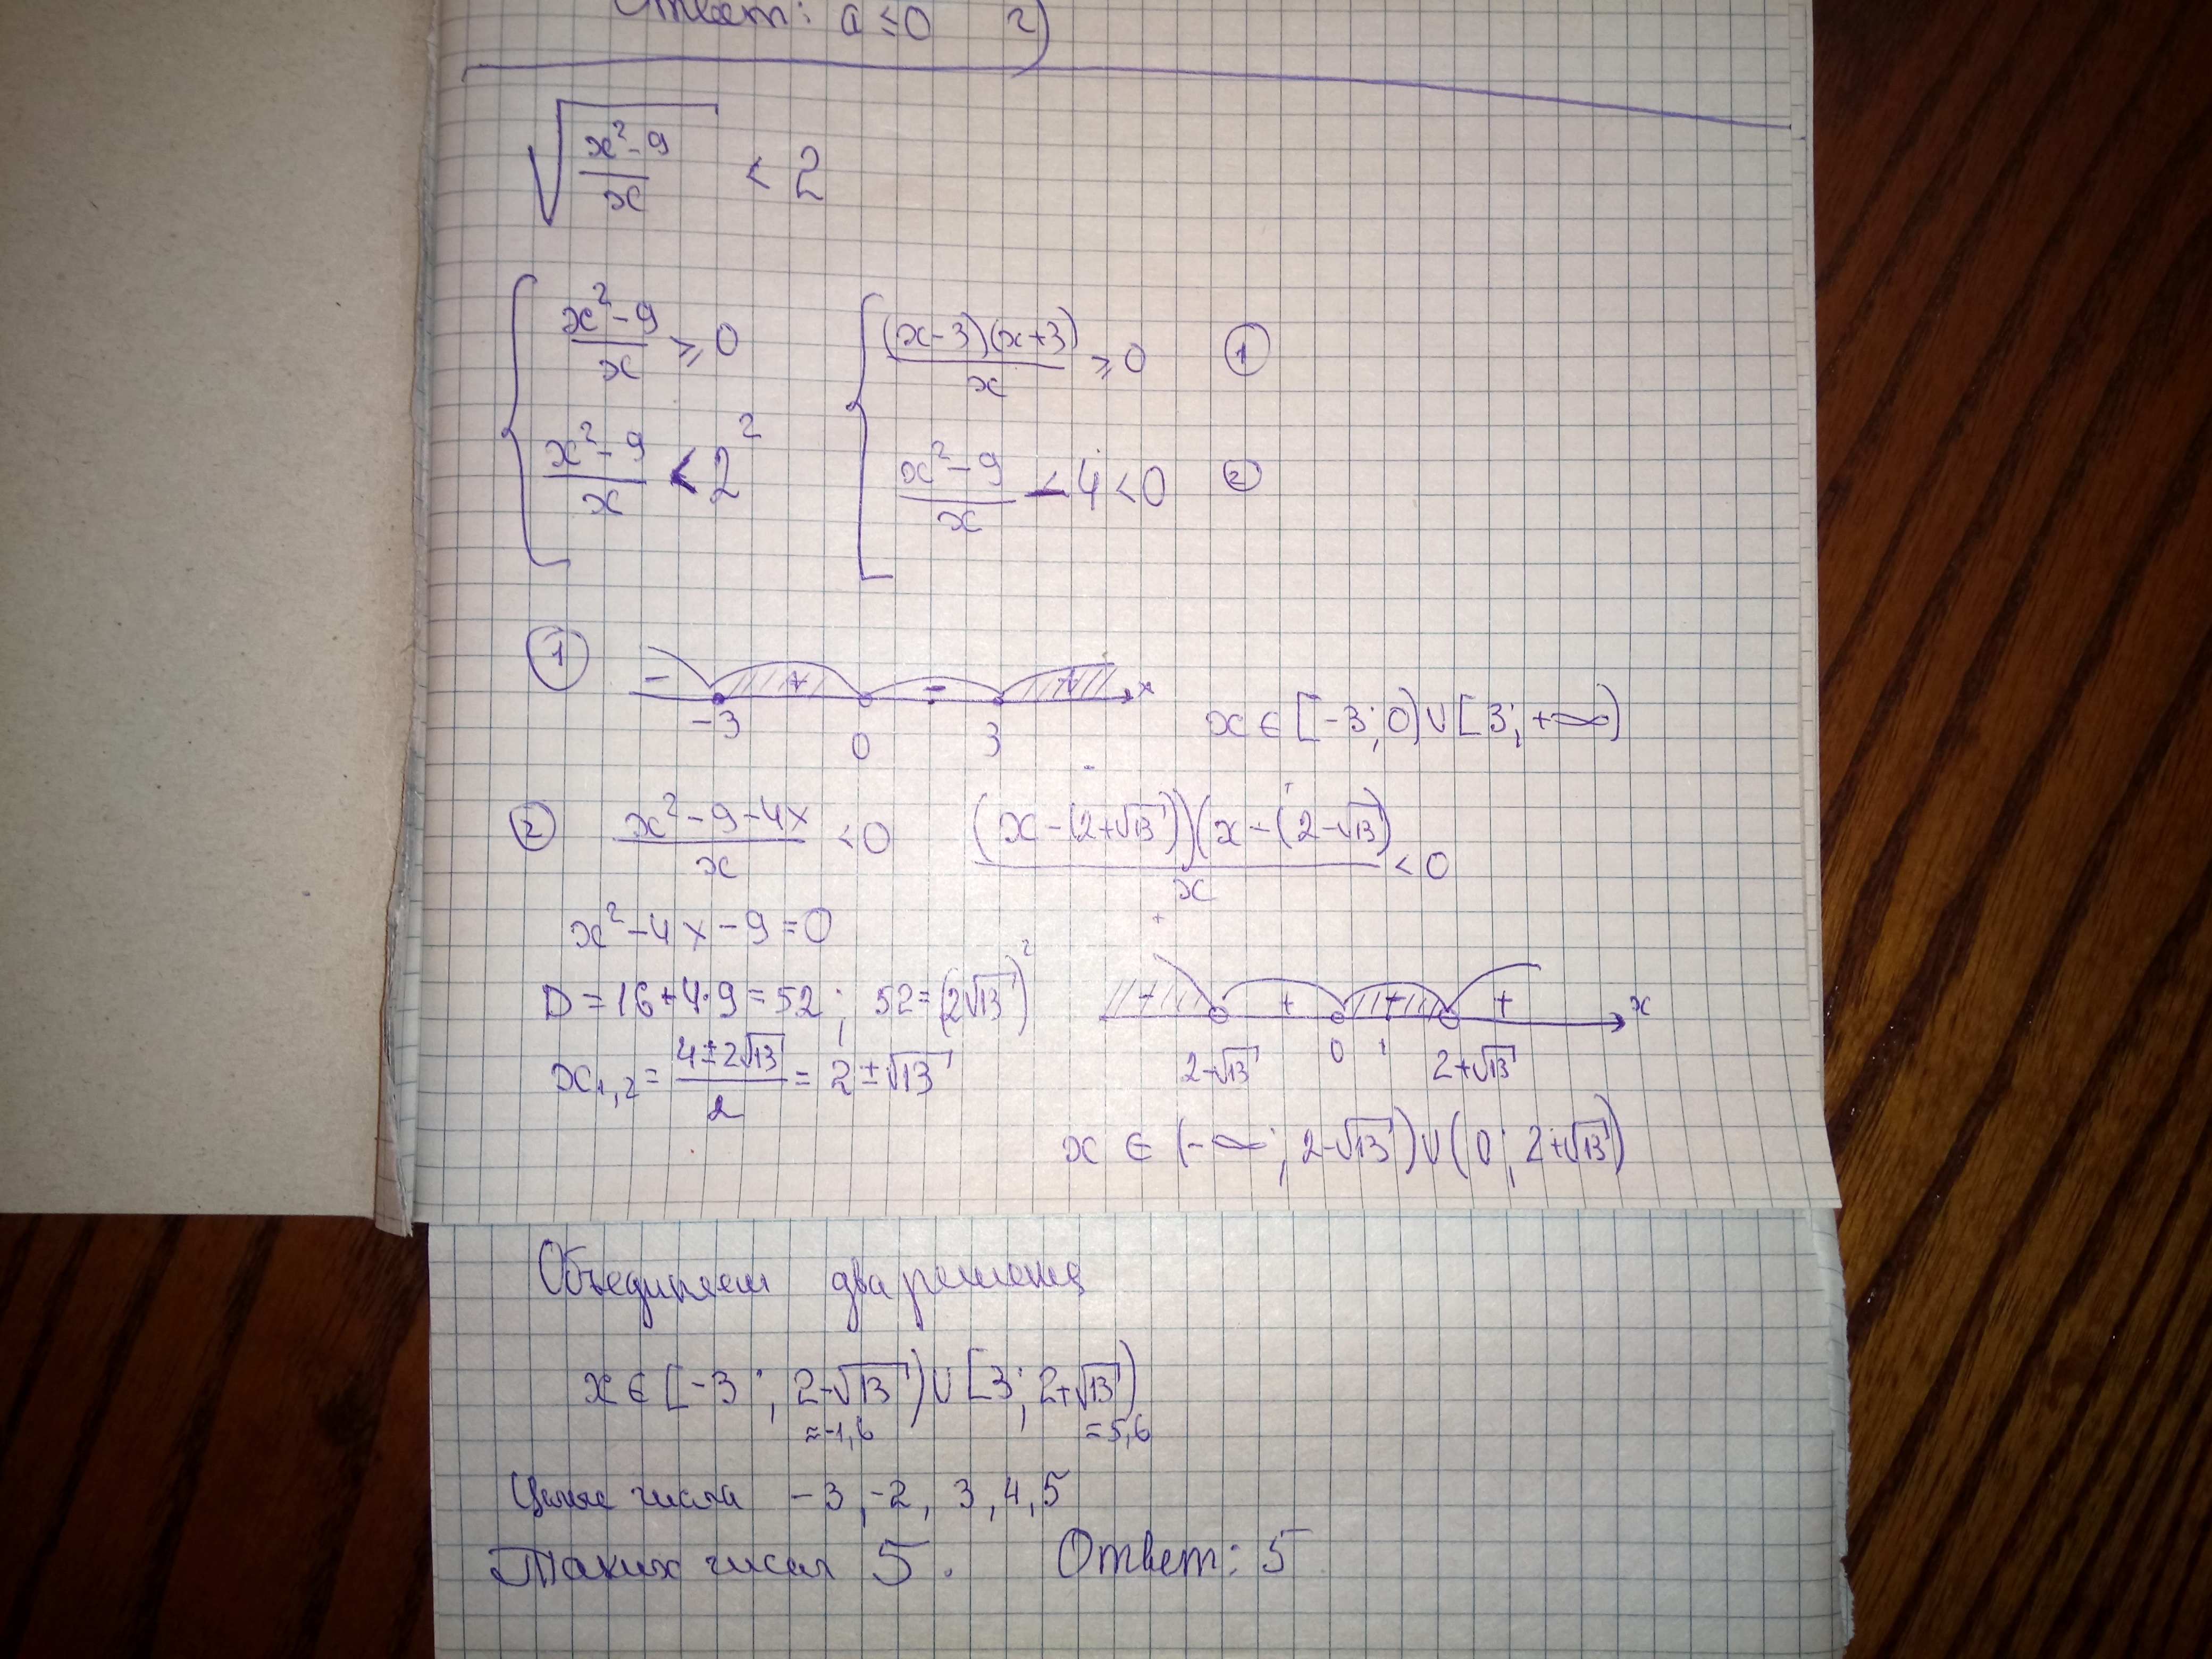 Ответ: a ≤ 0 2)
√((x²-9)/x) < 2
{ (x²-9)/x ≥ 0 { ((x-3)(x+3))/x ≥ 0 ①
(x²-9)/x < 2² (x²-9)/x - 4 < 0 ②
① - + - + x
-3 0 3 x ∈ [-3; 0) ∪ [3; +∞)
② (x²-9-4x)/x < 0 ((x-(2+√13))(x-(2-√13))/x < 0
x²-4x-9=0
D = 16+4·9 = 52; 52 = (2√13)²
- + - + x
x₁,₂ = (4±2√13)/2 = 2±√13
2-√13 0 1 2+√13
x ∈ (-∞; 2-√13) ∪ (0; 2+√13)
Объединяем два решения
x ∈ [-3; 2-√13) ∪ [3; 2+√13)
≈-1,6 =5,6
Целые числа -3, -2, 3, 4, 5
Таких чисел 5. Ответ: 5